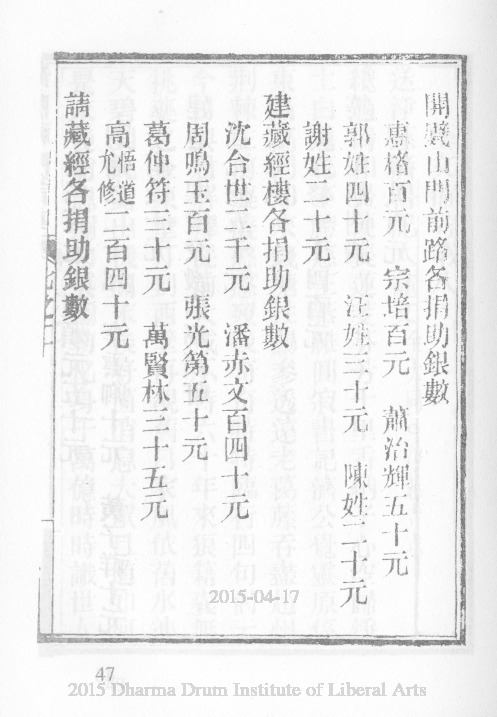 開甃山門前路各捐助銀數
惠楷百元 宗培百元 蕭治輝五十元
郭姓四十元 汪姓三十元 陳姓二十元
謝姓二十元
建藏經樓各捐助銀數
沈台世二千元 潘赤文百四十元
周鳴玉百元 張光第五十元
葛仲符三十元 萬賢林三十五元
高悟道允修二百四十元
請藏經各捐助銀數
2015-04-17
47
2015 Dharma Drum Institute of Liberal Arts